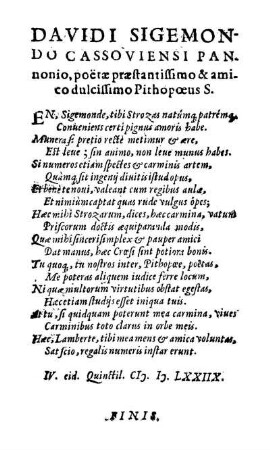 DAVIDI SIGEMON-
DO CASSOVIENSI PAN-
nonio, poëtæ præstantissimo & ami-
co dulcissimo Pithopœus S.
EN, Sigemonde, tibi Strozas natumq́ patremq́,
Conueniens certi pignus amoris habe.
Munera si pretio rectè metimur & ære,
Est leue; sin animo, non leue munus habes.
Si numeros etiam spectes & carminis artem,
Quàm sit ingenij diuitis istud opus,
Et benè tenoni, valeant cum regibus aulæ,
Et nimium captat quas rude vulgus opes;
Hæc mihi Strozarum, dices, hæc carmina, vatum
Priscorum doctis æquiparanda modis,
Quæ mihi sinceri simplex & pauper amici
Dat manus, hæc Crœsi sint potiora bonis.
Tu quoq́, in nostros inter, Pithopœe, poëtas,
Me poteras aliquem iudice ferre locum,
Ni quæ multorum virtutibus obstat egestas,
Hac etiam studijs esset iniqua tuis.
At tu, si quidquam poterunt mea carmina, viues
Carminibus toto clarus in orbe meis.
Hæc, Lamberte, tibi mea mens & amica voluntas,
Sat scio, regalis numeris instar erunt.
IV. eid. Quinctil. CIↃ. IↃ. LXXIIX.
FINIS.